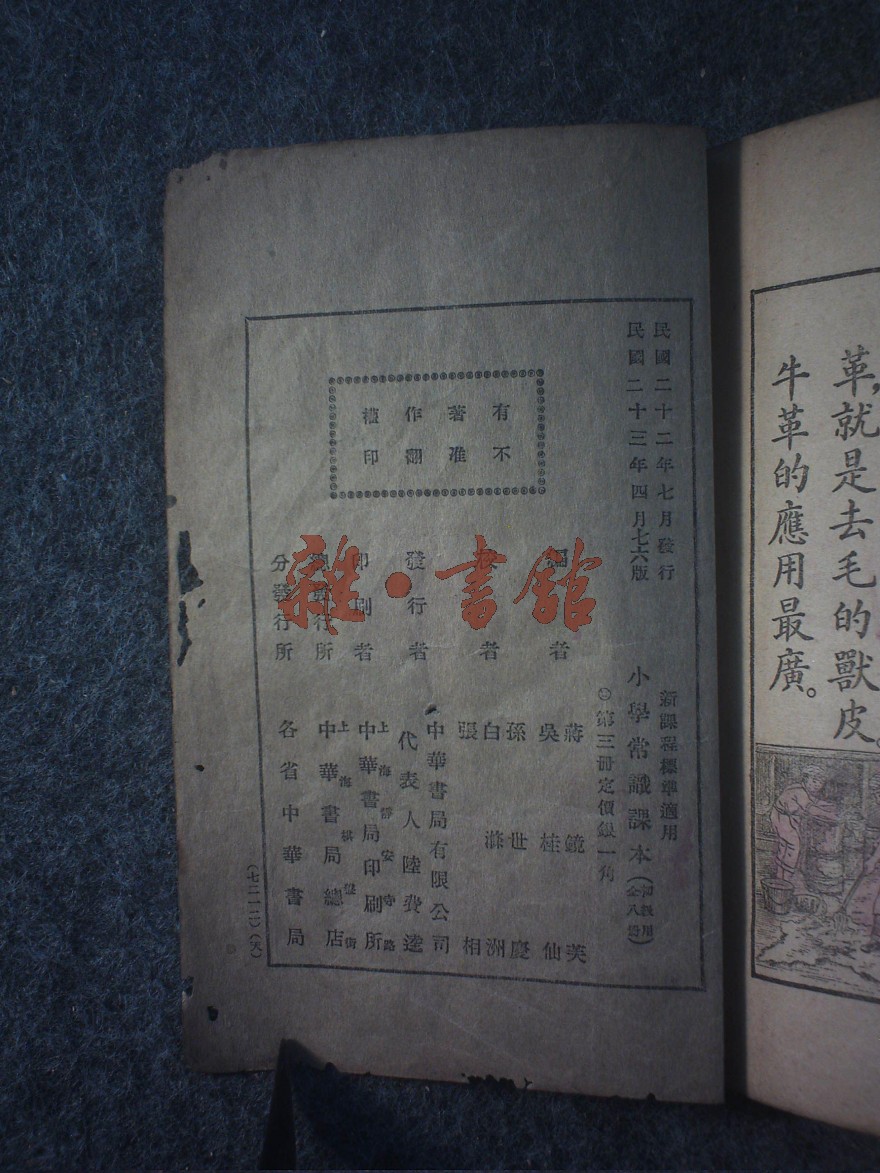 革,就是去毛的獸皮。
牛革的應用最廣。
民國二十二年七月發行
民國二十三年四月七六版
新課程標準適用
小學常識課本(初級用全八冊)
第三冊定價銀一角
有著作權
不准翻印
編者
蔣鏡芙
吳桂仙
校者
孫世慶
白滌洲
張相
發行者
中華書局有限公司
代表人陸費逵
印刷者
上海靜安寺路
中華書局印刷所
總發行所
上海棋盤街
中華書局總店
分發行所
各省中華書局
雜·書館